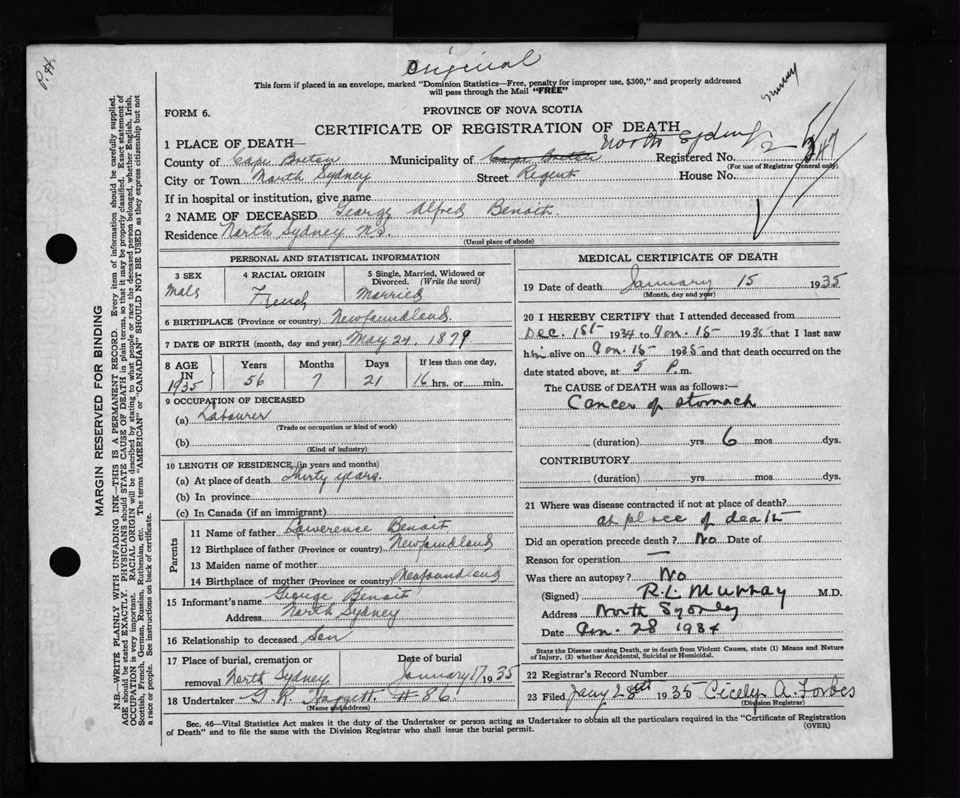 Original
P. H.
This form if placed in an envelope, marked "Dominion Statistics—Free, penalty for improper use, $300," and properly addressed
will pass through the Mail "FREE"
Murray
FORM 6.
PROVINCE OF NOVA SCOTIA
CERTIFICATE OF REGISTRATION OF DEATH
1 PLACE OF DEATH—
North Sydney
County of Cape Breton Municipality of Cape Breton Registered No. 2 347
(For use of Registrar General only)
City or Town North Sydney Street Regent House No.
If in hospital or institution, give name
2 NAME OF DECEASED George Alfred Benoit.
Residence North Sydney N.S.
(Usual place of abode)
PERSONAL AND STATISTICAL INFORMATION
3 SEX
Male
4 RACIAL ORIGIN
French
5 Single, Married, Widowed or
Divorced. (Write the word)
Married
6 BIRTHPLACE (Province or country) Newfoundland.
7 DATE OF BIRTH (month, day and year) May 24, 1879
8 AGE
IN
1935
Years
56
Months
7
Days
21
If less than one day,
16 hrs. or min.
9 OCCUPATION OF DECEASED
(a) Labourer
(Trade or occupation or kind of work)
(b)
(Kind of industry)
10 LENGTH OF RESIDENCE (in years and months)
(a) At place of death Thirty years.
(b) In province
(c) In Canada (if an immigrant)
Parents
11 Name of father Lawerence Benoit
12 Birthplace of father (Province or country) Newfoundland
13 Maiden name of mother
14 Birthplace of mother (Province or country) Newfoundland
15 Informant's name George Benoit
Address North Sydney
16 Relationship to deceased Son
17 Place of burial, cremation or
removal North Sydney
Date of burial
January 17, 1935
18 Undertaker G. R. # 86
(Name and address)
MEDICAL CERTIFICATE OF DEATH
19 Date of death January 15 1935
(Month, day and year)
20 I HEREBY CERTIFY that I attended deceased from
Dec. 1st 1934 to Jan. 15 1935 that I last saw
him alive on Jan. 15 1935 and that death occurred on the
date stated above, at 5 P. m.
The CAUSE OF DEATH was as follows:—
Cancer of stomach
(duration) yrs 6 mos dys.
CONTRIBUTORY
(duration) yrs. mos. dys.
21 Where was disease contracted if not at place of death?
at place of death
Did an operation precede death? No Date of
Reason for operation —
Was there an autopsy? No
(Signed) R.L. Murray M.D.
Address North Sydney
Date Jan. 28 1934
State the Disease causing Death, or in deaths from Violent Causes, state (1) Means and Nature
of Injury, (2) whether Accidental, Suicidal or Homicidal.
22 Registrar's Record Number
23 Filed Jany 28th 1935 Cicely A. Forbes
(Division Registrar)
Sec. 46—Vital Statistics Act makes it the duty of the Undertaker or person acting as Undertaker to obtain all the particulars required in the "Certificate of Registration
of Death" and to file the same with the Division Registrar who shall issue the burial permit.
(OVER)
MARGIN RESERVED FOR BINDING
N.B.—WRITE PLAINLY WITH UNFADING INK—THIS IS A PERMANENT RECORD. Every item of information should be carefully supplied.
AGE should be stated EXACTLY. PHYSICIANS should STATE CAUSE OF DEATH in plain terms, so that it may be properly classified. Exact statement of
OCCUPATION is very important. RACIAL ORIGIN will be described by stating to what people or race the deceased person belonged, whether English, Irish,
Scottish, French, German, Russian, Ruthenian, etc. The terms "AMERICAN" or "CANADIAN" SHOULD NOT BE USED as they express citizenship but not
a race or people. See instructions on back of certificate.